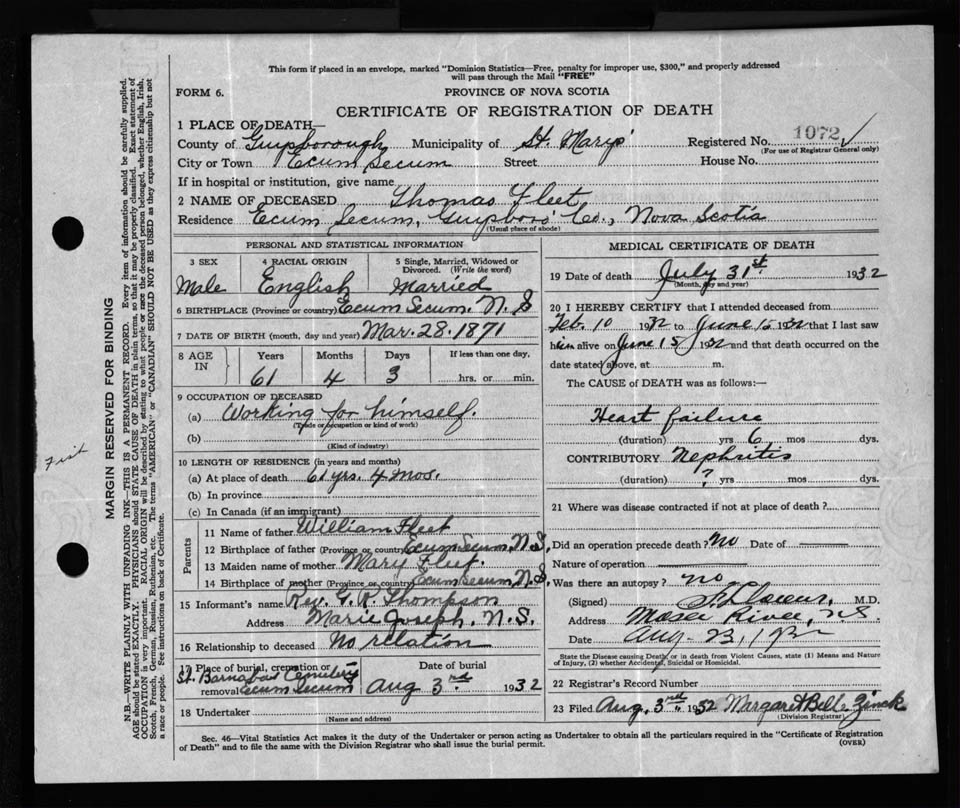 This form if placed in an envelope, marked "Dominion Statistics—Free, penalty for improper use, $300," and properly addressed
will pass through the Mail "FREE"
FORM 6.
PROVINCE OF NOVA SCOTIA
CERTIFICATE OF REGISTRATION OF DEATH
1 PLACE OF DEATH—
County of Guysborough Municipality of St. Marys Registered No. 1072 ✓
(For use of Registrar General only)
City or Town Ecum Secum Street House No.
If in hospital or institution, give name
2 NAME OF DECEASED Thomas Fleet
Residence Ecum Secum, Guysboro' Co., Nova Scotia
(Usual place of abode)
PERSONAL AND STATISTICAL INFORMATION
3 SEX 4 RACIAL ORIGIN 5 Single, Married, Widowed or
Divorced. (Write the word)
Male English Married
6 BIRTHPLACE (Province or country) Ecum Secum. N. S
7 DATE OF BIRTH (month, day and year) Mar. 28. 1871
8 AGE IN Years Months Days If less than one day,
61 4 3 hrs. or min.
9 OCCUPATION OF DECEASED
(a) Working for himself.
(Trade or occupation or kind of work)
(b)
(Kind of industry)
10 LENGTH OF RESIDENCE (in years and months)
(a) At place of death 61 yrs. 4 mos.
(b) In province
(c) In Canada (if an immigrant)
Parents
11 Name of father William Fleet
12 Birthplace of father (Province or country) Ecum Secum, N. S.
13 Maiden name of mother Mary Fleet
14 Birthplace of mother (Province or country) Ecum Secum, N. S.
15 Informant's name Rev. G. R. Thompson
Address Marie Joseph, N. S.
16 Relationship to deceased No relation
17 Place of burial, cremation or Date of burial
St. Barnabas Cemetery
removal Ecum Secum Aug 3rd 1932
18 Undertaker
(Name and address)
MEDICAL CERTIFICATE OF DEATH
19 Date of death July 31st 1932
(Month, day and year)
20 I HEREBY CERTIFY that I attended deceased from
Feb. 10 1932 to June 15 1932 that I last saw
him alive on June 15 1932 and that death occurred on the
date stated above, at m.
The CAUSE of DEATH was as follows:—
Heart failure
(duration) yrs 6 mos dys.
CONTRIBUTORY Nephritis
(duration) ? yrs mos dys.
21 Where was disease contracted if not at place of death?
Did an operation precede death? No Date of
Nature of operation
Was there an autopsy? no
(Signed) M.D.
Address Moser River, N.S.
Date Aug
State the Disease causing Death, or in death from Violent Causes, state (1) Means and Nature
of Injury, (2) whether Accidental, Suicidal or Homicidal.
22 Registrar's Record Number
23 Filed Aug. 3rd. 1932 Margaret Belle Zinck
(Division Registrar)
Sec. 46—Vital Statistics Act makes it the duty of the Undertaker or person acting as Undertaker to obtain all the particulars required in the "Certificate of Registration
of Death" and to file the same with the Division Registrar who shall issue the burial permit.
(OVER)
MARGIN RESERVED FOR BINDING
N.B.—WRITE PLAINLY WITH UNFADING INK—THIS IS A PERMANENT RECORD. Every item of information should be carefully supplied.
AGE should be stated EXACTLY. PHYSICIANS should STATE CAUSE OF DEATH in plain terms, so that it may be properly classified. Exact statement of
OCCUPATION is very important. RACIAL ORIGIN will be described by stating to what people or race the deceased person belonged, whether English, Irish,
Scotch, French, German, Russian, Ruthenian, etc. The terms "AMERICAN" or "CANADIAN" SHOULD NOT BE USED as they express citizenship but not
a race or people. See instructions on back of Certificate.